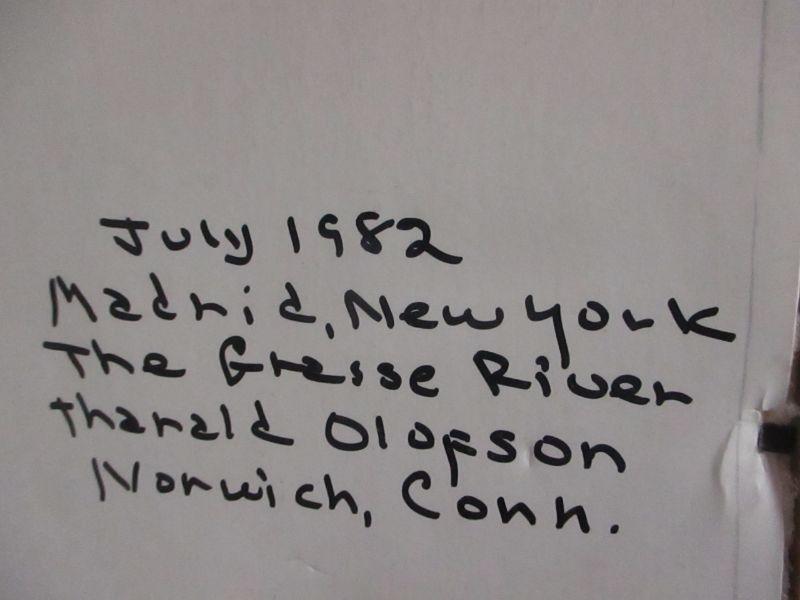 July 1982
Madrid, New York
The Grasse River
tharald Olofson
Norwich, Conn.